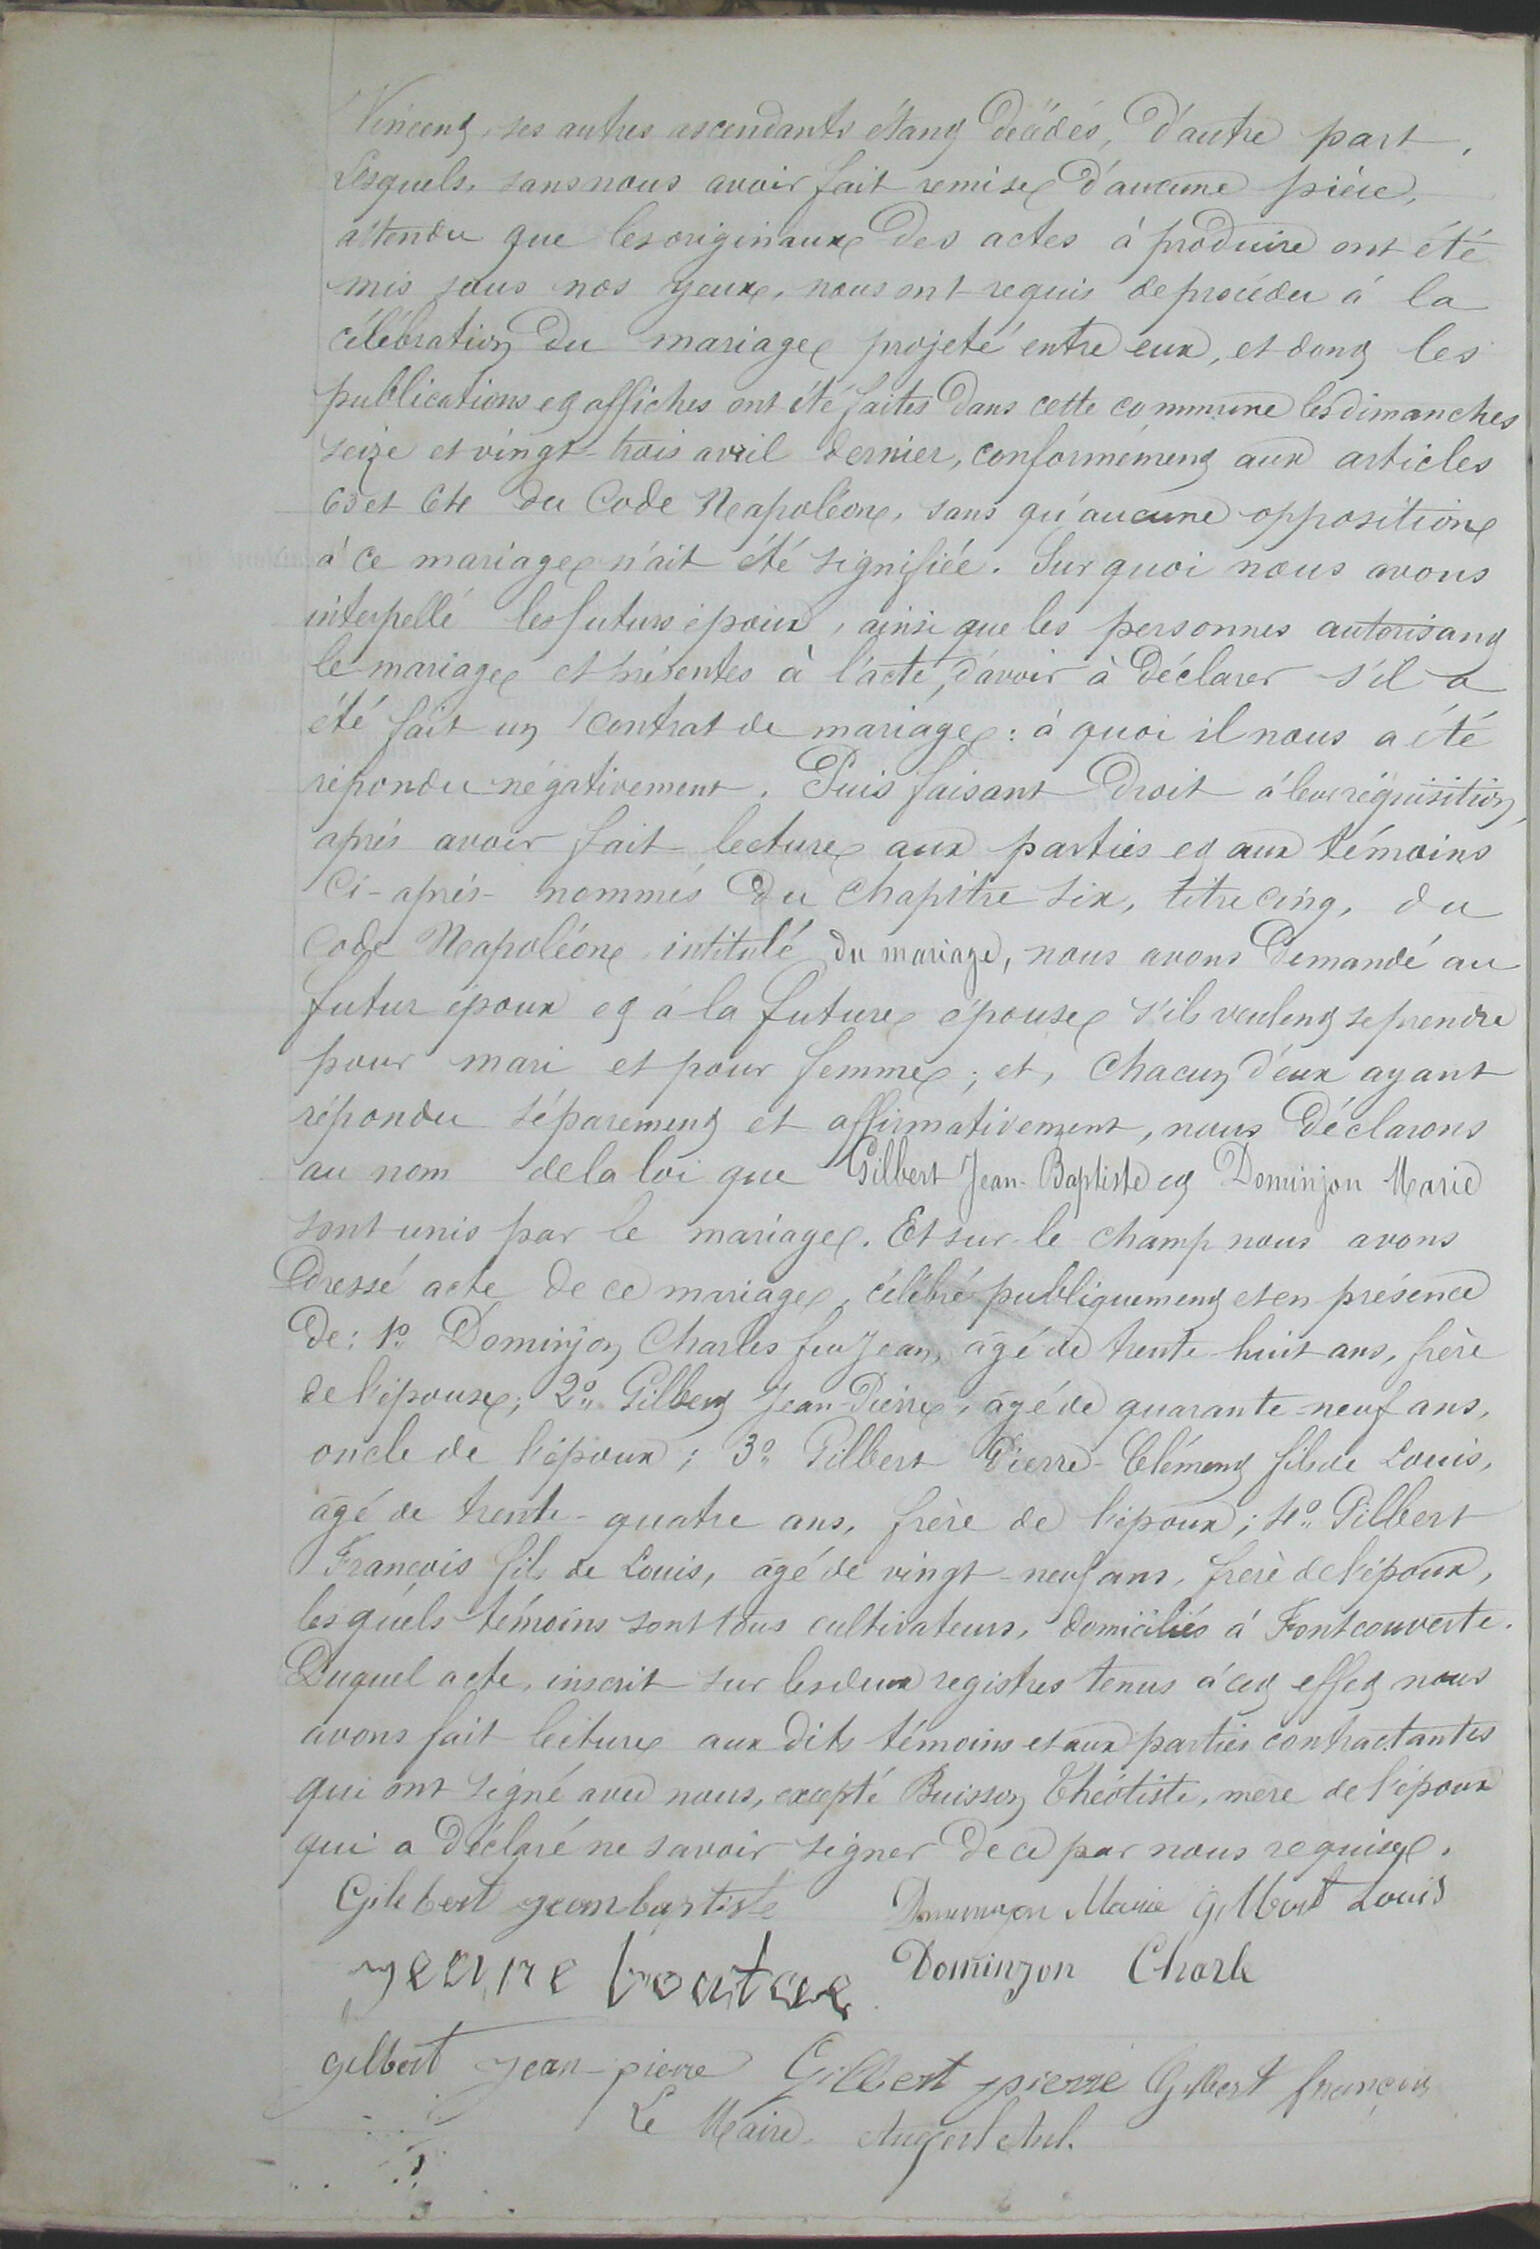 Vincent, ses autres ascendants étant décédés, d'autre part.
Lesquels, sans nous avoir fait remise d'aucune pièce,
attendu que les originaux des actes à produire ont été
mis sous nos yeux, nous ont requis de procéder à la
célébration du mariage projeté entre eux, et dont les
publications et affiches ont été faites dans cette commune les dimanches
seize et vingt-trois avril dernier, conformément aux articles
63 et 64 du Code Napoléon, sans qu'aucune opposition
à ce mariage n'ait été signifiée. Sur quoi nous avons
interpellé les futurs époux, ainsi que les personnes autorisant
le mariage et présentes à l'acte, d'avoir à déclarer s'il a
été fait un contrat de mariage : à quoi il nous a été
répondu négativement. Puis faisant droit à leur réquisition,
après avoir fait lecture aux parties et aux témoins
ci-après-nommés du chapitre six, titre cinq, du
Code Napoléon intitulé du mariage, nous avons demandé au
futur époux et à la future épouse s'ils veulent se prendre
pour mari et pour femme ; et, chacun d'eux ayant
répondu séparement et affirmativement, nous déclarons
au nom de la loi que Gilbert Jean-Baptiste et Dominjon Marie
sont unis par le mariage. Et sur-le champ nous avons
dressé acte de ce mariage, célébré publiquement et en présence
de : 1º Dominjon Charles feu Jean, agé de trente-huit ans, frère
de l'épouse ; 2º Gilbert Jean-Pierre, agé de quarante-neuf ans,
oncle de l'époux ; 3º Gilbert Pierre-Clément fils de Louis,
agé de trente-quatre ans, frère de l'époux ; 4º Gilbert
François fils de Louis, agé de vingt-neuf ans, frère de l'époux,
lesquels témoins sont tous cultivateurs, domiciliés à Fontcouverte.
Duquel acte, inscrit sur les deux registres tenus à cet effet nous
avons fait lecture aux dits témoins et aux parties contractantes
qui ont signé avec nous, excepté Buisson Théotiste, mère de l'époux
qui a déclaré ne savoir signer de ce par nous requise.
Gilebert jeanbaptiste Dominjon Marie Gilbert Louis
Dominjon Charle
gilbert jean-pierre Gilbert pierre Gilbert françois
Le Maire